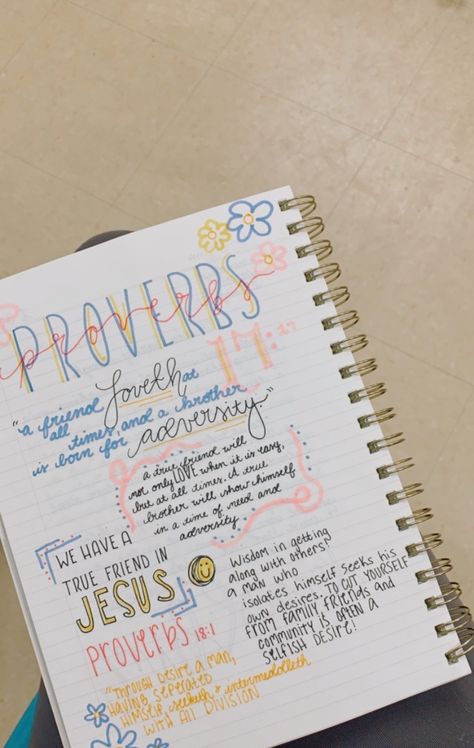 PROVERBS
proverbs
17:17
"a friend loveth at
all times, and a brother
is born for adversity"
a true friend will
not only LOVE when it is easy,
but at all times. A true
brother will show himself
in a time of need and
adversity
WE HAVE A
TRUE FRIEND IN
JESUS
Wisdom in getting
along with others!
a man who
isolates himself seeks his
own desires. TO CUT YOURSELF
FROM FAMILY, FRIENDS and
community IS OFTEN A
SELFISH DESIRE!
PROVERBS 18:1
"THROUGH DESIRE A MAN,
HAVING SEPERATED
HIMSELF, seeketh & intermeddleth
WITH All DIVISION